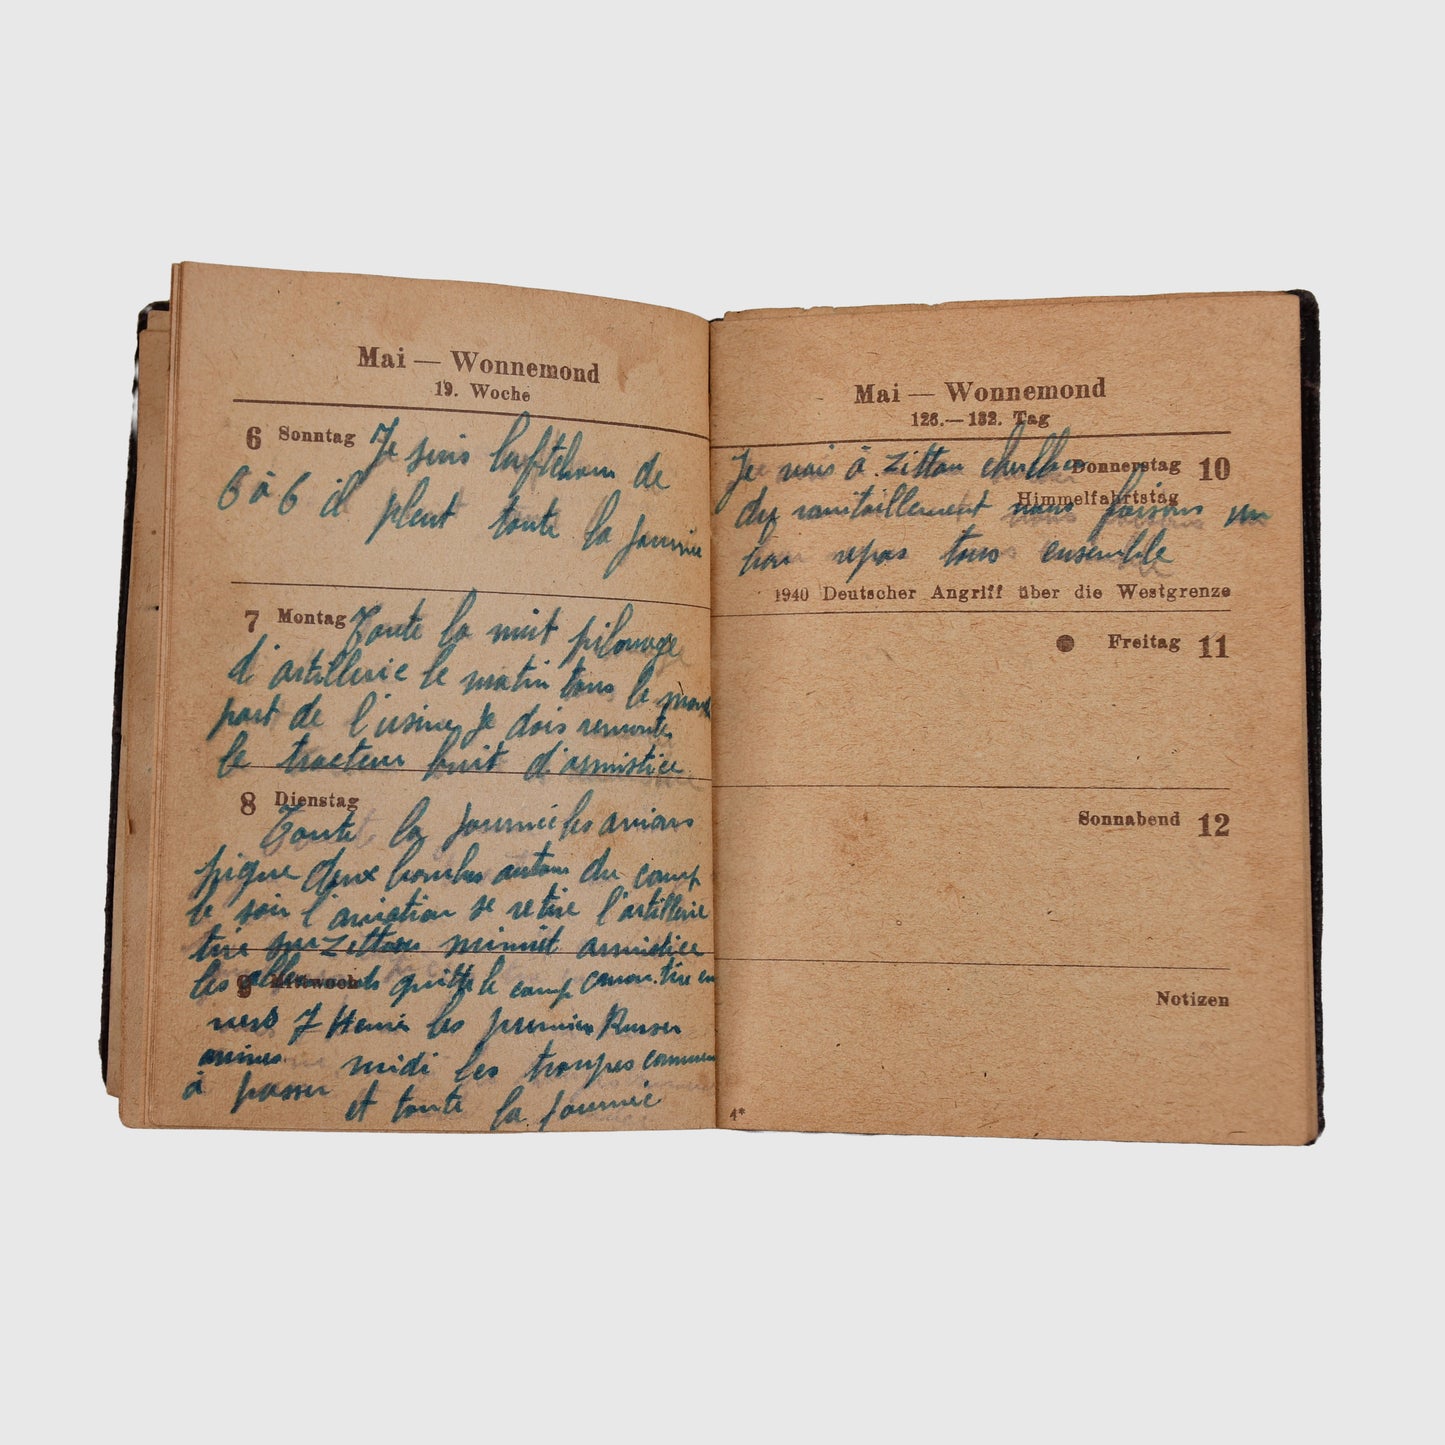 Mai — Wonnemond
19. Woche
6 Sonntag Je suis luftchou de
6 à 6 il pleut toute la journée
7 Montag Toute la nuit pilonage
d'artillerie le matin tous le monde
part de l'usine je dois remonter
le tracteur bruit d'armistice
8 Dienstag
Toute la journée les avions
pique deux bombes autour du camp
le soir l'aviation se retire l'artillerie
tire sur Zittau minuit armistice
9 Mittwoch
les allemands quitte le camp canon tire en
vers 7 Heure les premier Russer
arrives midi les troupes commence
à passer et toute la journée
Mai — Wonnemond
126.—132. Tag
Donnerstag 10
Himmelfahrtstag
Je vais à Zittau chercher
du ravitaillement nous faisons un
bon repas tous ensemble
1940 Deutscher Angriff über die Westgrenze
Freitag 11
Sonnabend 12
Notizen
4*